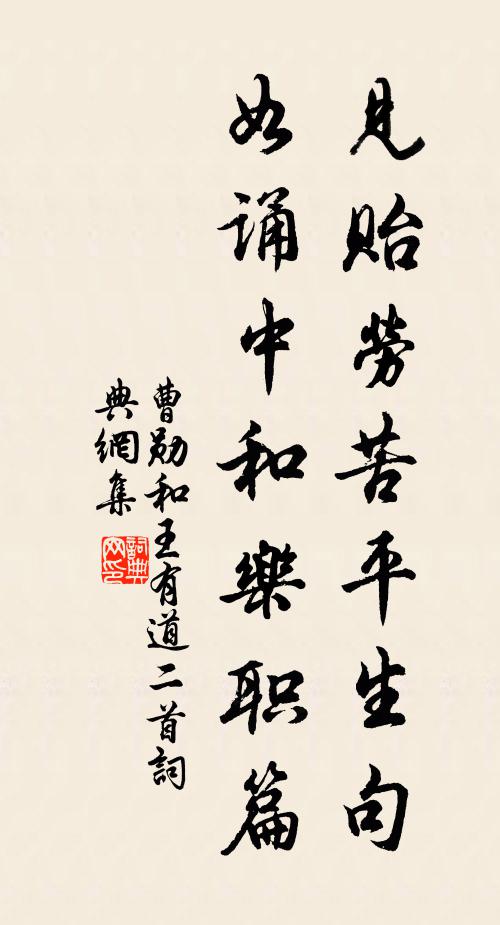 見貽勞苦平生句
如誦中和樂职篇
曹勛和王有道二首詞
典網集
詞典
网印